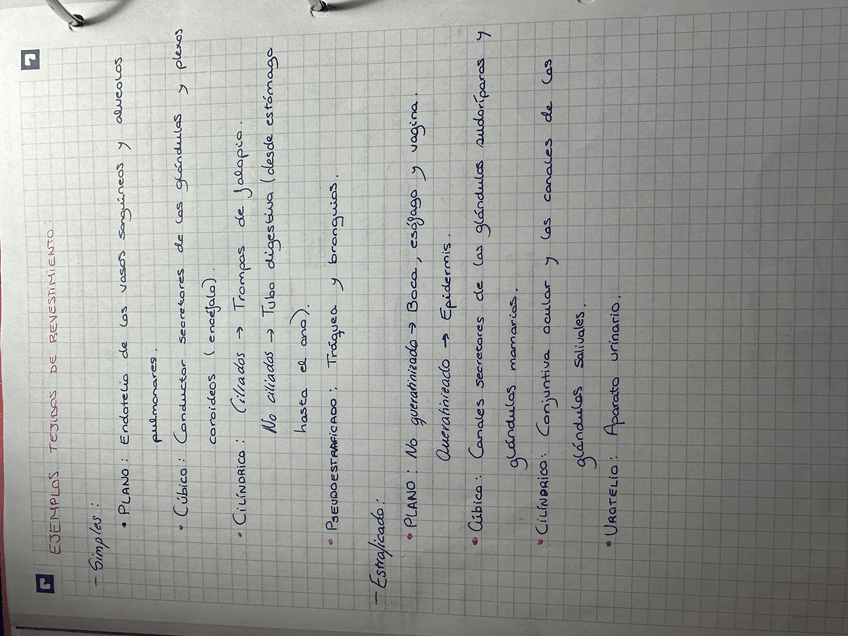 EJEMPLOS TEJIDOS DE REVESTIMIENTO:
- Simples:
• PLANO: Endotelio de los vasos sanguíneos y alveolos
pulmonares.
• CÚBICO: Conductor secretores de las glándulas y plexos
coroideos (encéfalo).
• CILÍNDRICO: Ciliados → Trompas de falopio.
No ciliados → Tubo digestivo (desde estómago
hasta el ano).
• PSEUDOESTRAFICADO: Tráquea y bronquios.
- Estraficado:
• PLANO: No queratinizado → Boca, esófago y vagina.
Queratinizado → Epidermis.
• Cúbico: Canales secretores de las glándulas sudoríparas y
glándulas mamarias.
• CILÍNDRICO: Conjuntiva ocular y los canales de las
glándulas salivales.
• UROTELIO: Aparato urinario.